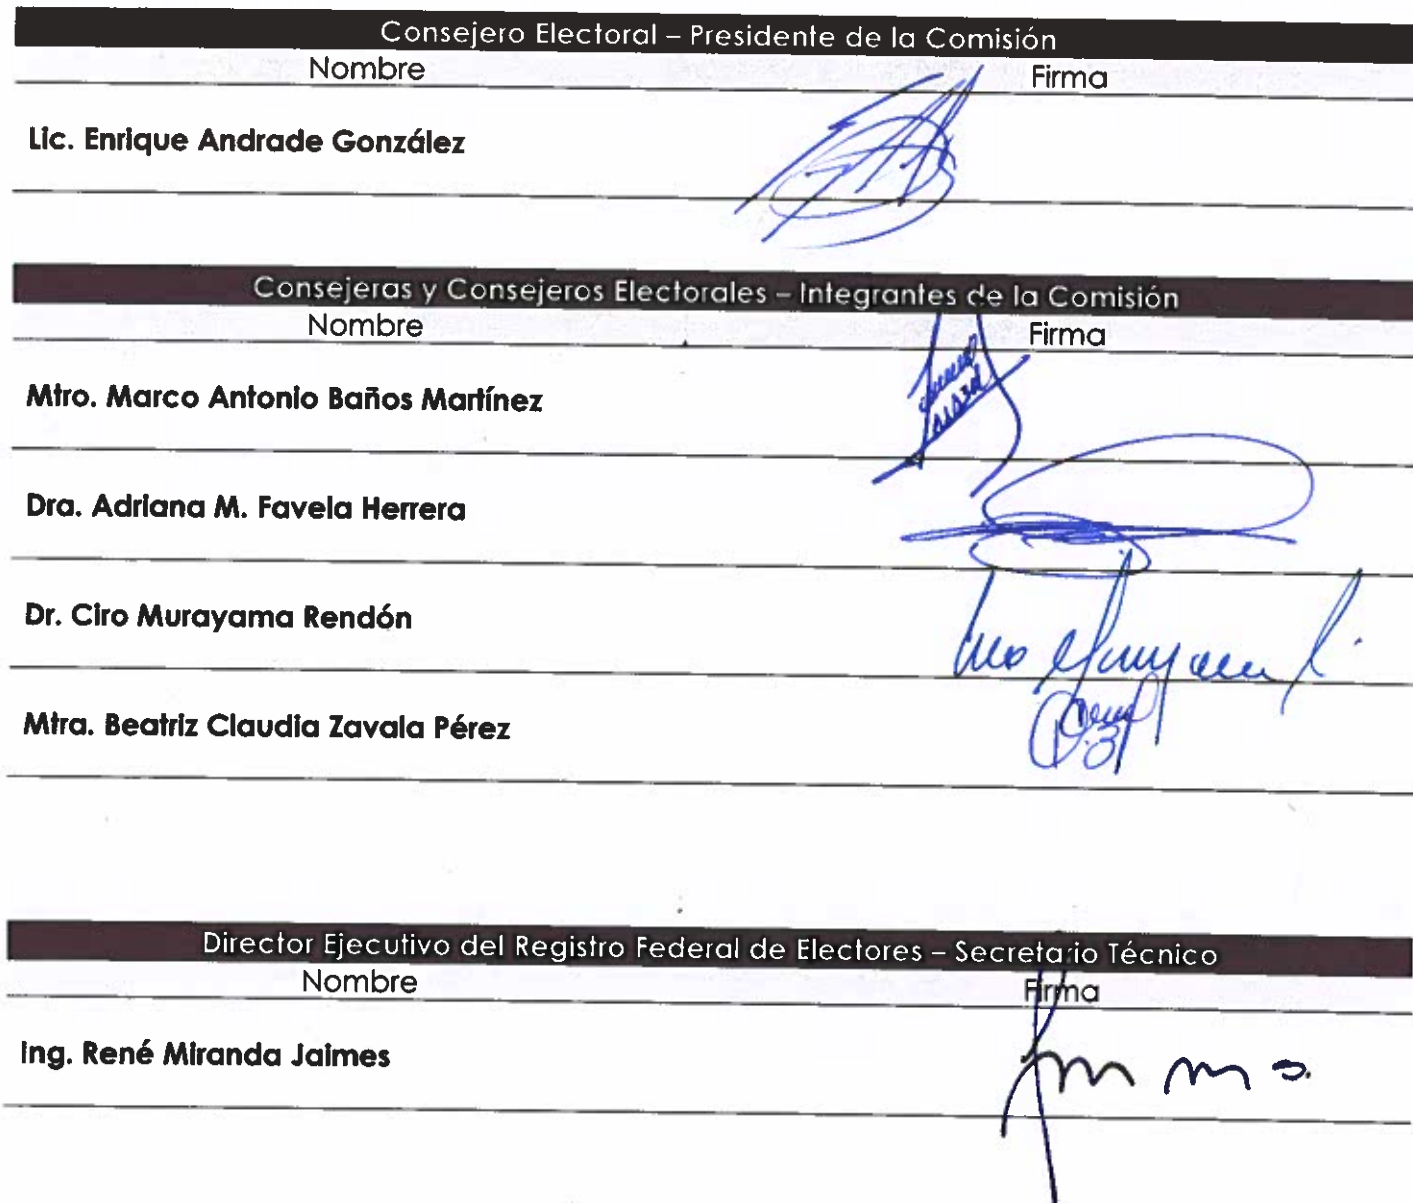 Consejero Electoral – Presidente de la Comisión
Nombre Firma
Lic. Enrique Andrade González
Consejeras y Consejeros Electorales – Integrantes de la Comisión
Nombre Firma
Mtro. Marco Antonio Baños Martínez
Dra. Adriana M. Favela Herrera
Dr. Ciro Murayama Rendón
Mtra. Beatriz Claudia Zavala Pérez
Director Ejecutivo del Registro Federal de Electores – Secretario Técnico
Nombre Firma
Ing. René Miranda Jaimes